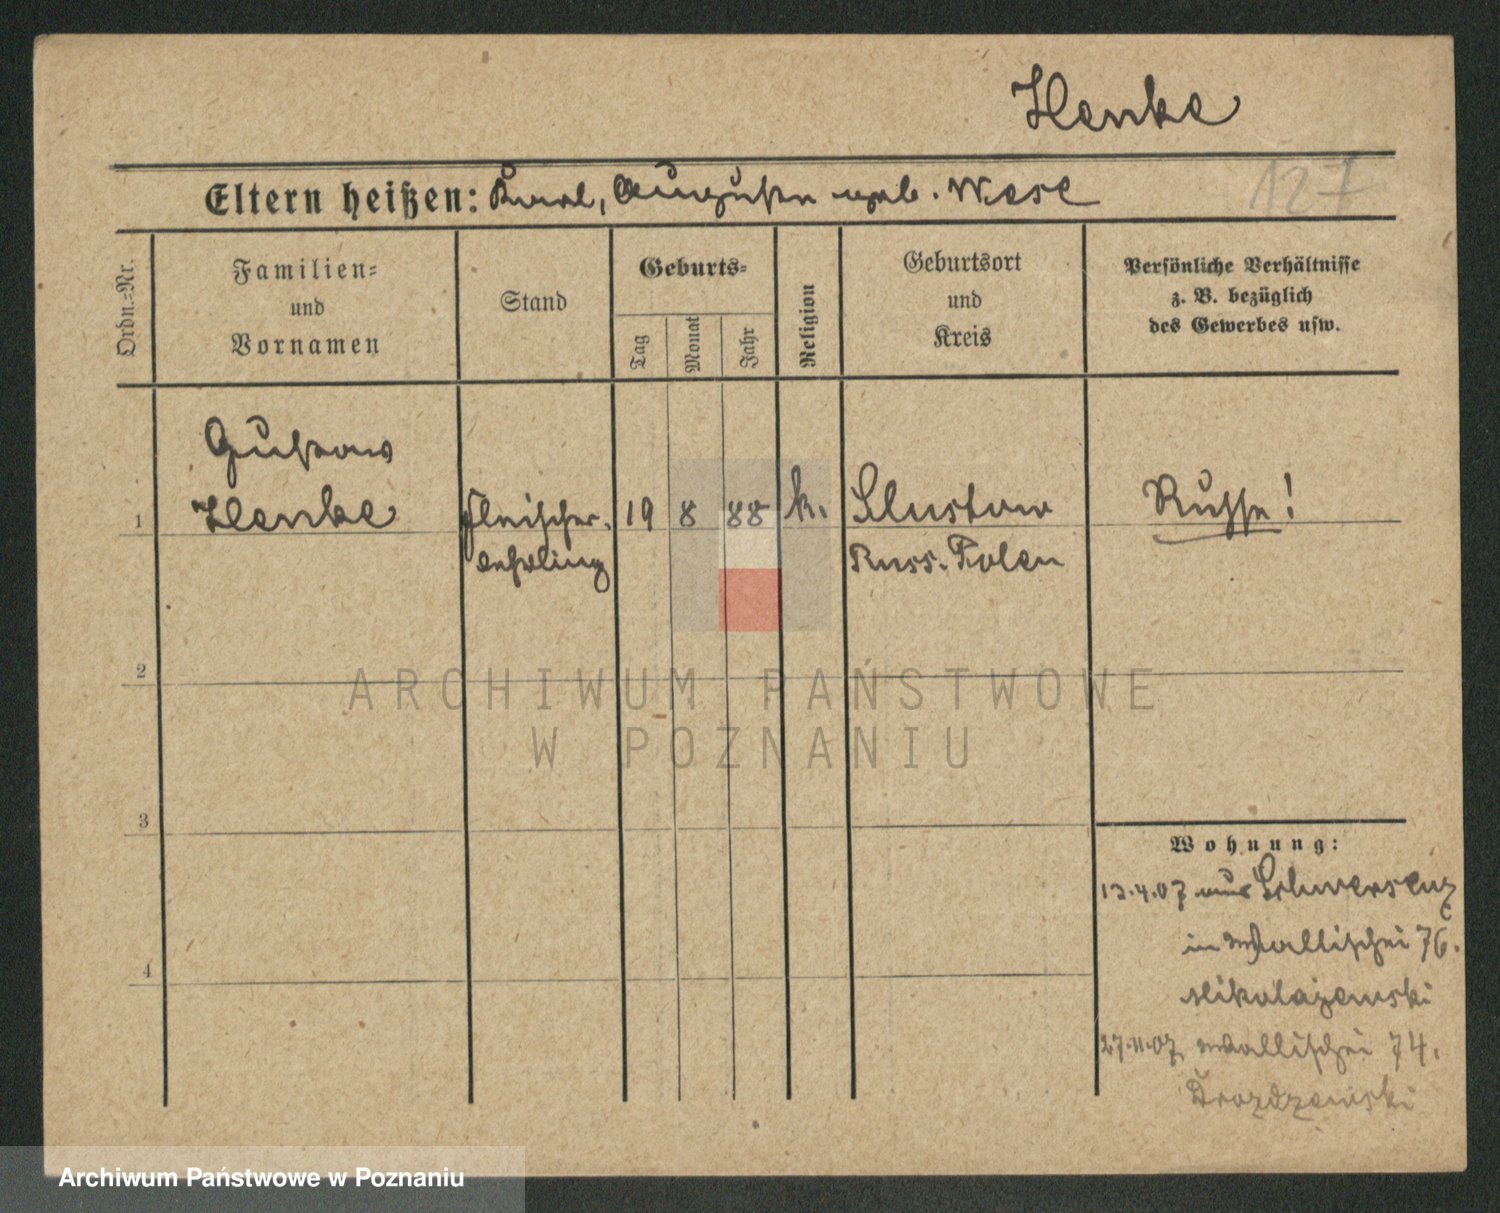 Henke
Eltern heißen: Karl, Auguste geb. Wese
127
Ordn.=Nr.
Familien=
und
Vornamen
Stand
Geburts=
Tag
Monat
Jahr
Religion
Geburtsort
und
Kreis
Persönliche Verhältnisse
z. B. bezüglich
des Gewerbes usw.
Gustav
1 Henke Fleischer- 19 8 88 k. Slustow Russe!
lehrling Russ. Polen
2
ARCHIWUM PAŃSTWOWE
W POZNANIU
3
Wohnung:
13.4.07 aus Schwersenz
in Wallischei 76.
4
Nikolajewski
27.11.07 Wallischei 74.
Drozdzewski
Archiwum Państwowe w Poznaniu